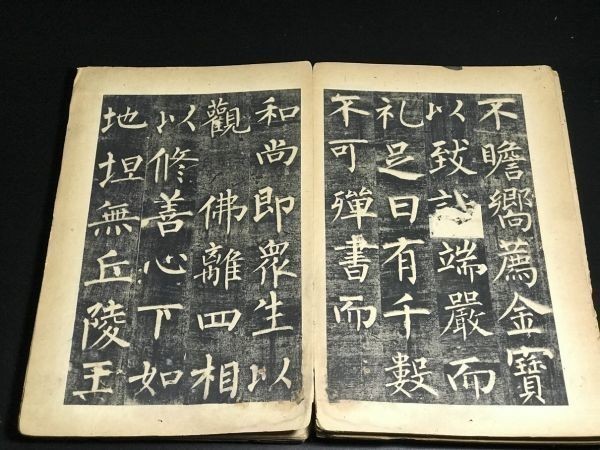 不瞻嚮薦金寶
以致端嚴而
礼足日有千數
不可殫書而
和尚即衆生以
觀佛離四相
以修善心下如
地坦無丘陵王